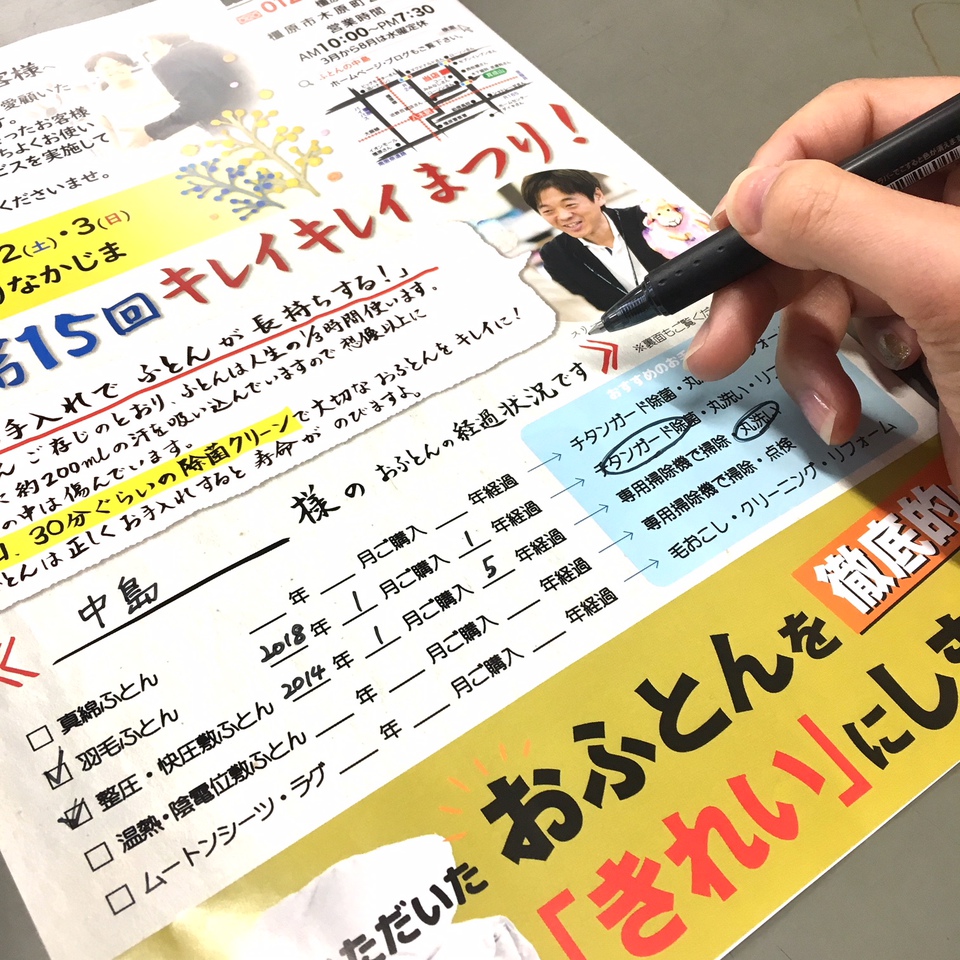 橿原市木原町
営業時間
AM10:00〜PM7:30
3月から8月は水曜定休
ホームページ・ブログもご覧下さい。
ふとんの中島
客様へ
愛顧いた
ったお客様
ちよくお使い
ビスを実施して
くださいませ。
2(土)・3(日)
なかじま
第15回キレイキレイまつり!
手入れで ふとんが長持ちする!」
ご存じのとおり、ふとんは人生の1/3時間使います。
約200mlの汗を吸い込んでいますので想像以上に
の中は傷んでいます。
30分ぐらいの除菌クリーンで大切なおふとんをキレイに!
とんは正しくお手入れすると寿命がのびますよ。
※裏面もご覧くだ
中島 様のおふとんの経過状況です
おすすめのお
真綿ふとん 年 月ご購入 年経過
チタンガード除菌・丸
羽毛ふとん 2018年 1月ご購入 1年経過
チタンガード除菌・丸洗い・リフ
整圧・快圧敷ふとん 2014年 1月ご購入 5年経過
専用掃除機で掃除・丸洗い
温熱・陰電位敷ふとん 年 月ご購入 年経過
専用掃除機で掃除・点検
ムートンシーツ・ラグ 年 月ご購入 年経過
毛おこし・クリーニング・リフォーム
徹底的
おふとんを
ただいた
「きれい」にしま